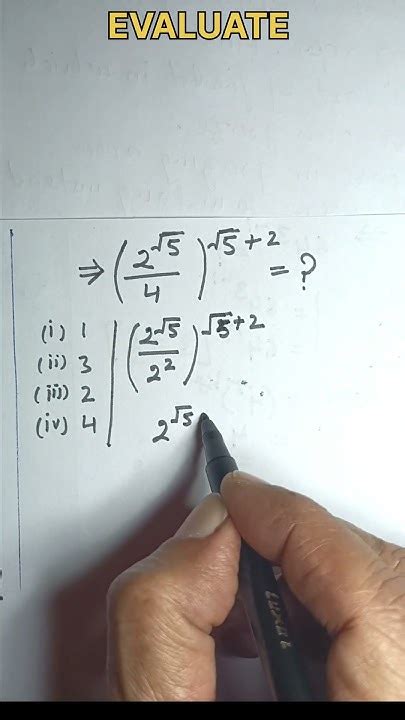 EVALUATE
⇒ (2^√5/4)^√5+2 = ?
(i) 1
(ii) 3
(iii) 2
(iv) 4
(2^√5/2^2)^√5+2
2^√5